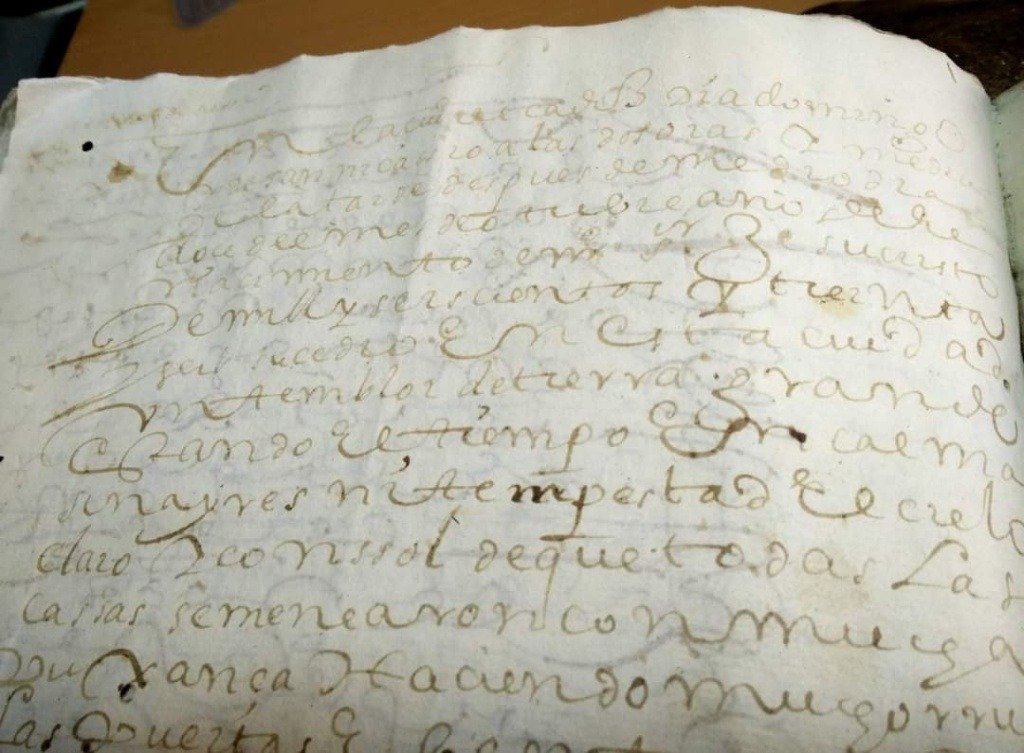 En la dia domingo
a las dos oras y media
de la tarde despues de medio dia
del mes de otubre año del
nacimiento de nro sr Jesucristo
de mill y seiscientos y treinta
y seis sucedio en esta ciudad
un temblor de tierra grande
estando el tiempo en calma
sin ayres ni tempestad y el cielo
claro y con ssol de que todas las
cassas se menearon con mucha
Haciendo mucho rru
las puertas